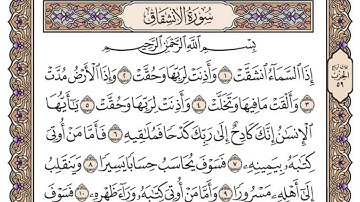 سُورَةُ الانشِقَاقِ
بِسْمِ اللَّهِ الرَّحْمَٰنِ الرَّحِيمِ
إِذَا السَّمَاءُ انشَقَّتْ ١ وَأَذِنَتْ لِرَبِّهَا وَحُقَّتْ ٢ وَإِذَا الْأَرْضُ مُدَّتْ
٣ وَأَلْقَتْ مَا فِيهَا وَتَخَلَّتْ ٤ وَأَذِنَتْ لِرَبِّهَا وَحُقَّتْ ٥ يَٰٓأَيُّهَا
الْإِنسَٰنُ إِنَّكَ كَادِحٌ إِلَىٰ رَبِّكَ كَدْحًا فَمُلَٰقِيهِ ٦ فَأَمَّا مَنْ أُوتِيَ
كِتَٰبَهُۥ بِيَمِينِهِۦ ٧ فَسَوْفَ يُحَاسَبُ حِسَابًا يَسِيرًا ٨ وَيَنقَلِبُ
إِلَىٰٓ أَهْلِهِۦ مَسْرُورًا ٩ وَأَمَّا مَنْ أُوتِيَ كِتَٰبَهُۥ وَرَآءَ ظَهْرِهِۦ ١٠ فَسَوْفَ
الحزب
٥٩